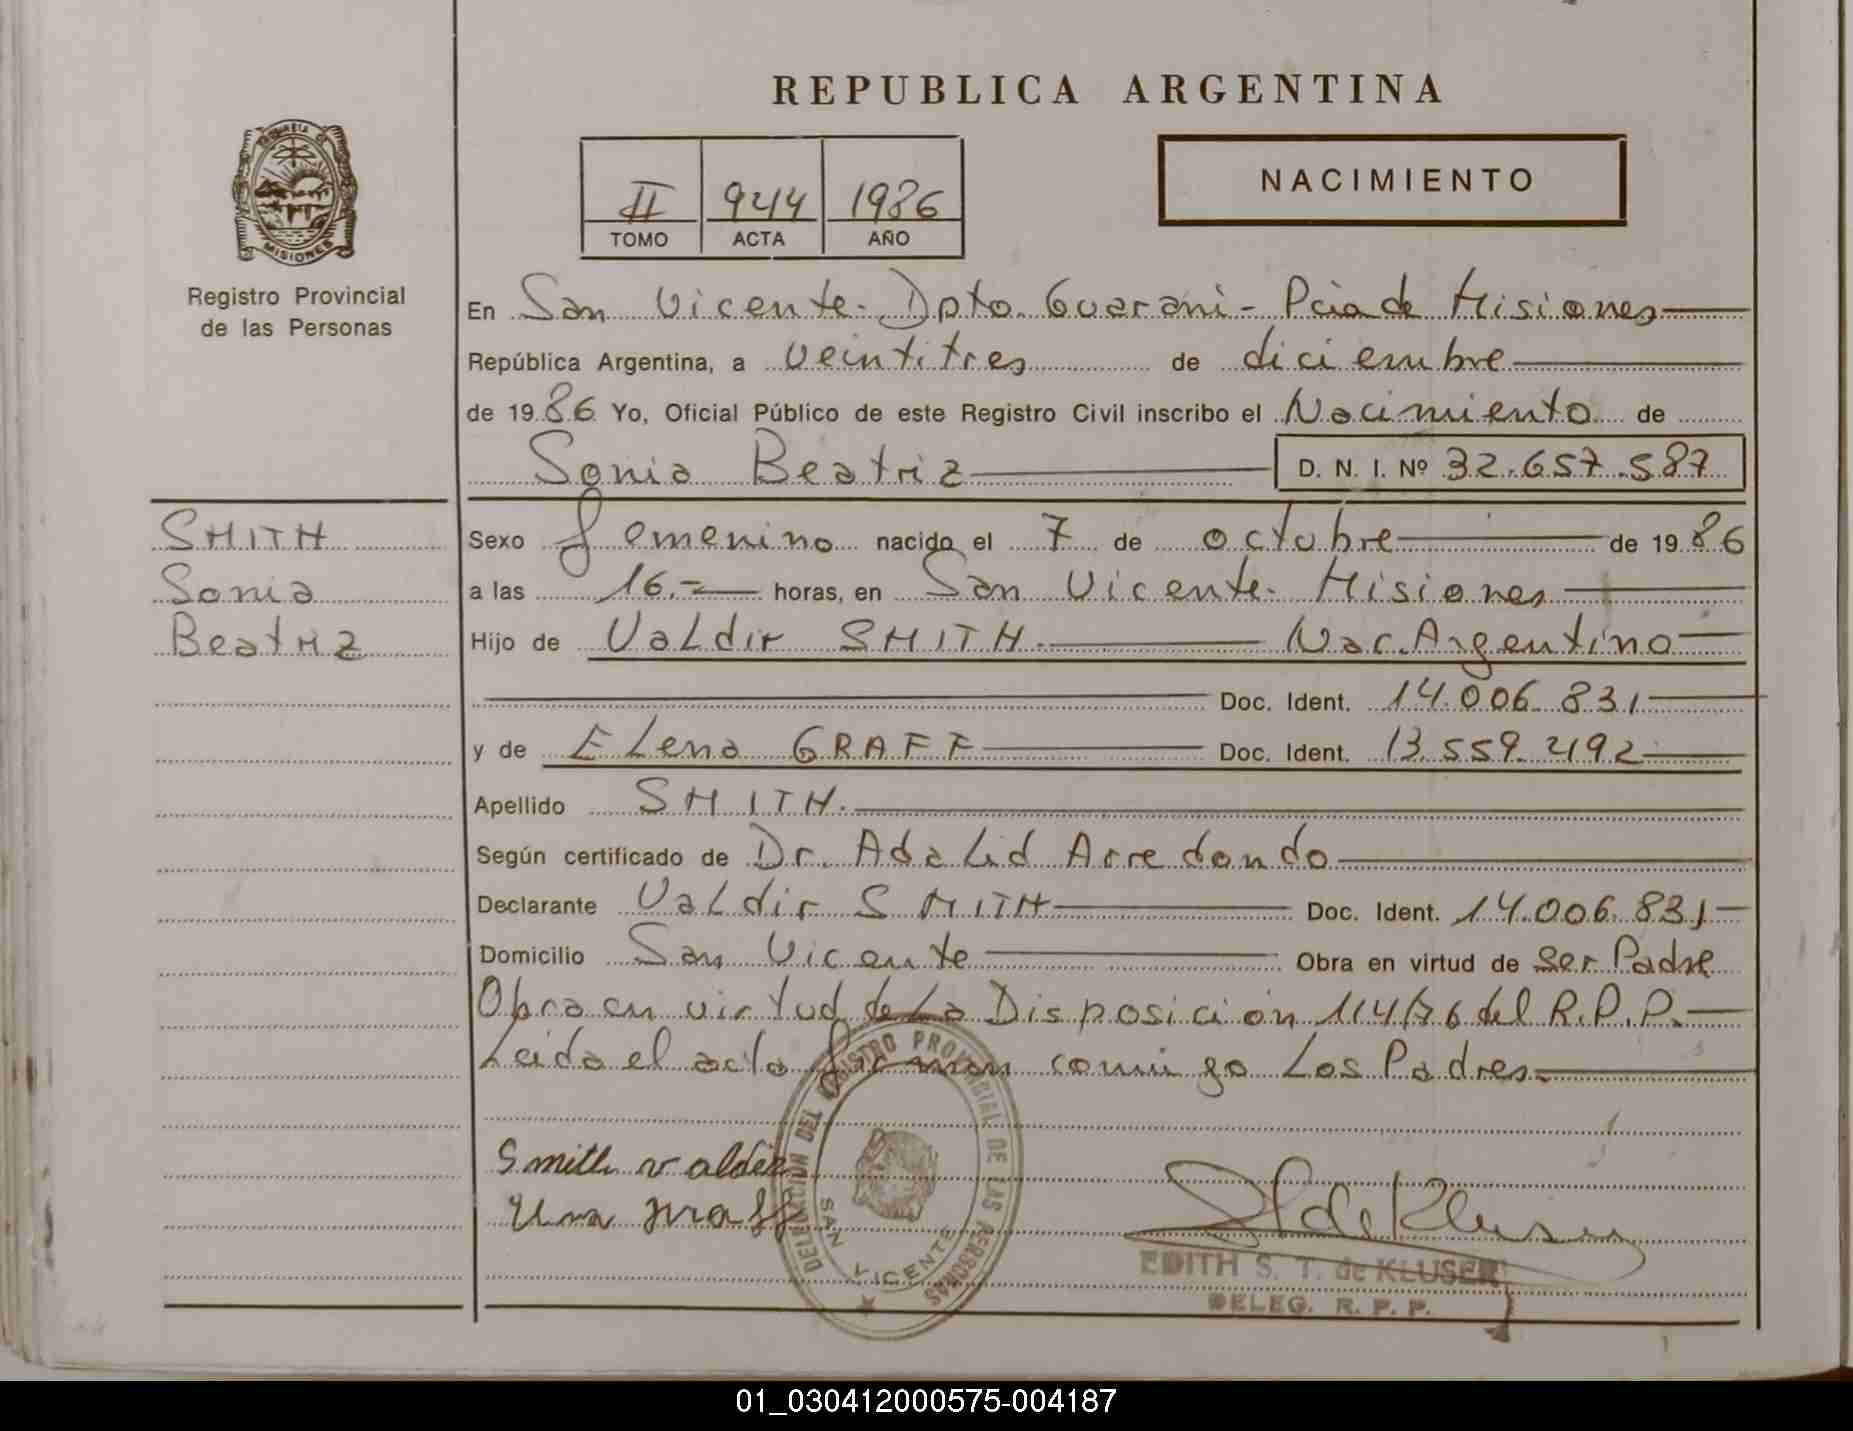 REPUBLICA ARGENTINA
NACIMIENTO
II 944 1986
TOMO ACTA AÑO
MISIONES
Registro Provincial
de las Personas
En San Vicente - Dpto. Guarani - Pcia de Misiones
República Argentina, a veintitres de diciembre
de 1986 Yo, Oficial Público de este Registro Civil inscribo el Nacimiento de
Sonia Beatriz D. N. I. Nº 32.657.587
SMITH
Sonia
Beatriz
Sexo femenino nacido el 7 de octubre de 1986
a las 16.= horas, en San Vicente - Misiones
Hijo de Valdir SMITH. Nac. Argentino
Doc. Ident. 14.006.831
y de ELena GRAFF Doc. Ident. 13.559.492
Apellido SMITH.
Según certificado de Dr. Adalid Arredondo
Declarante Valdir SMITH Doc. Ident. 14.006.831
Domicilio San Vicente Obra en virtud de Ser Padre
Obra en virtud de La Disposición 114/76 del R.P.P.
Leida el acta firman comigo Los Padres.
Smith valdir
graff
DELEGACION DEL REGISTRO PROVINCIAL DE LAS PERSONAS
SAN VICENTE
de Kluser
EDITH S. T. de KLUSER
DELEG. R. P. P.
01_030412000575-004187